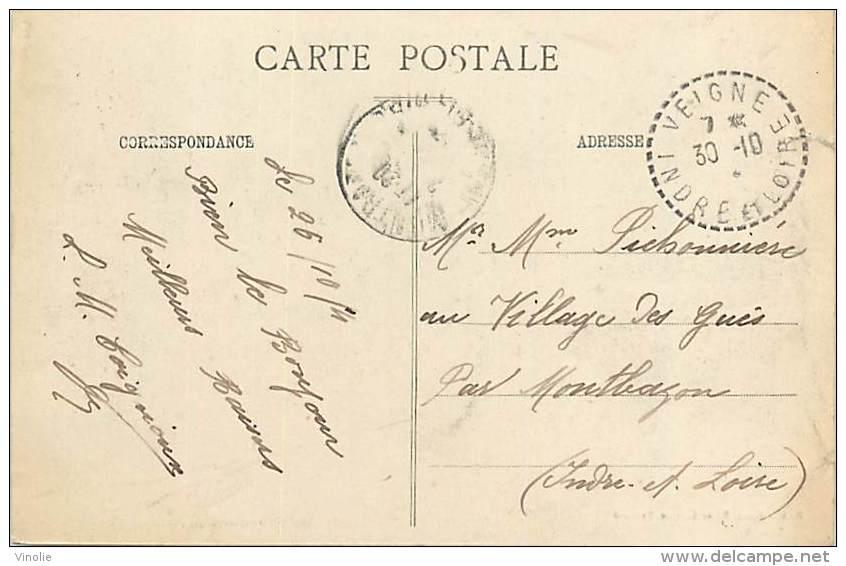 CARTE POSTALE
CORRESPONDANCE
ADRESSE
VEIGNE
7 *
30 -10
INDRE ET LOIRE
Le 26/10/11
Bien le Bonjour
Meilleurs Baisers
L. M.
Mr Mme Pichonnière
au Village Des Gués
Par Montbazon
(Indre-et-Loire)
Vinolie
delcampe.net